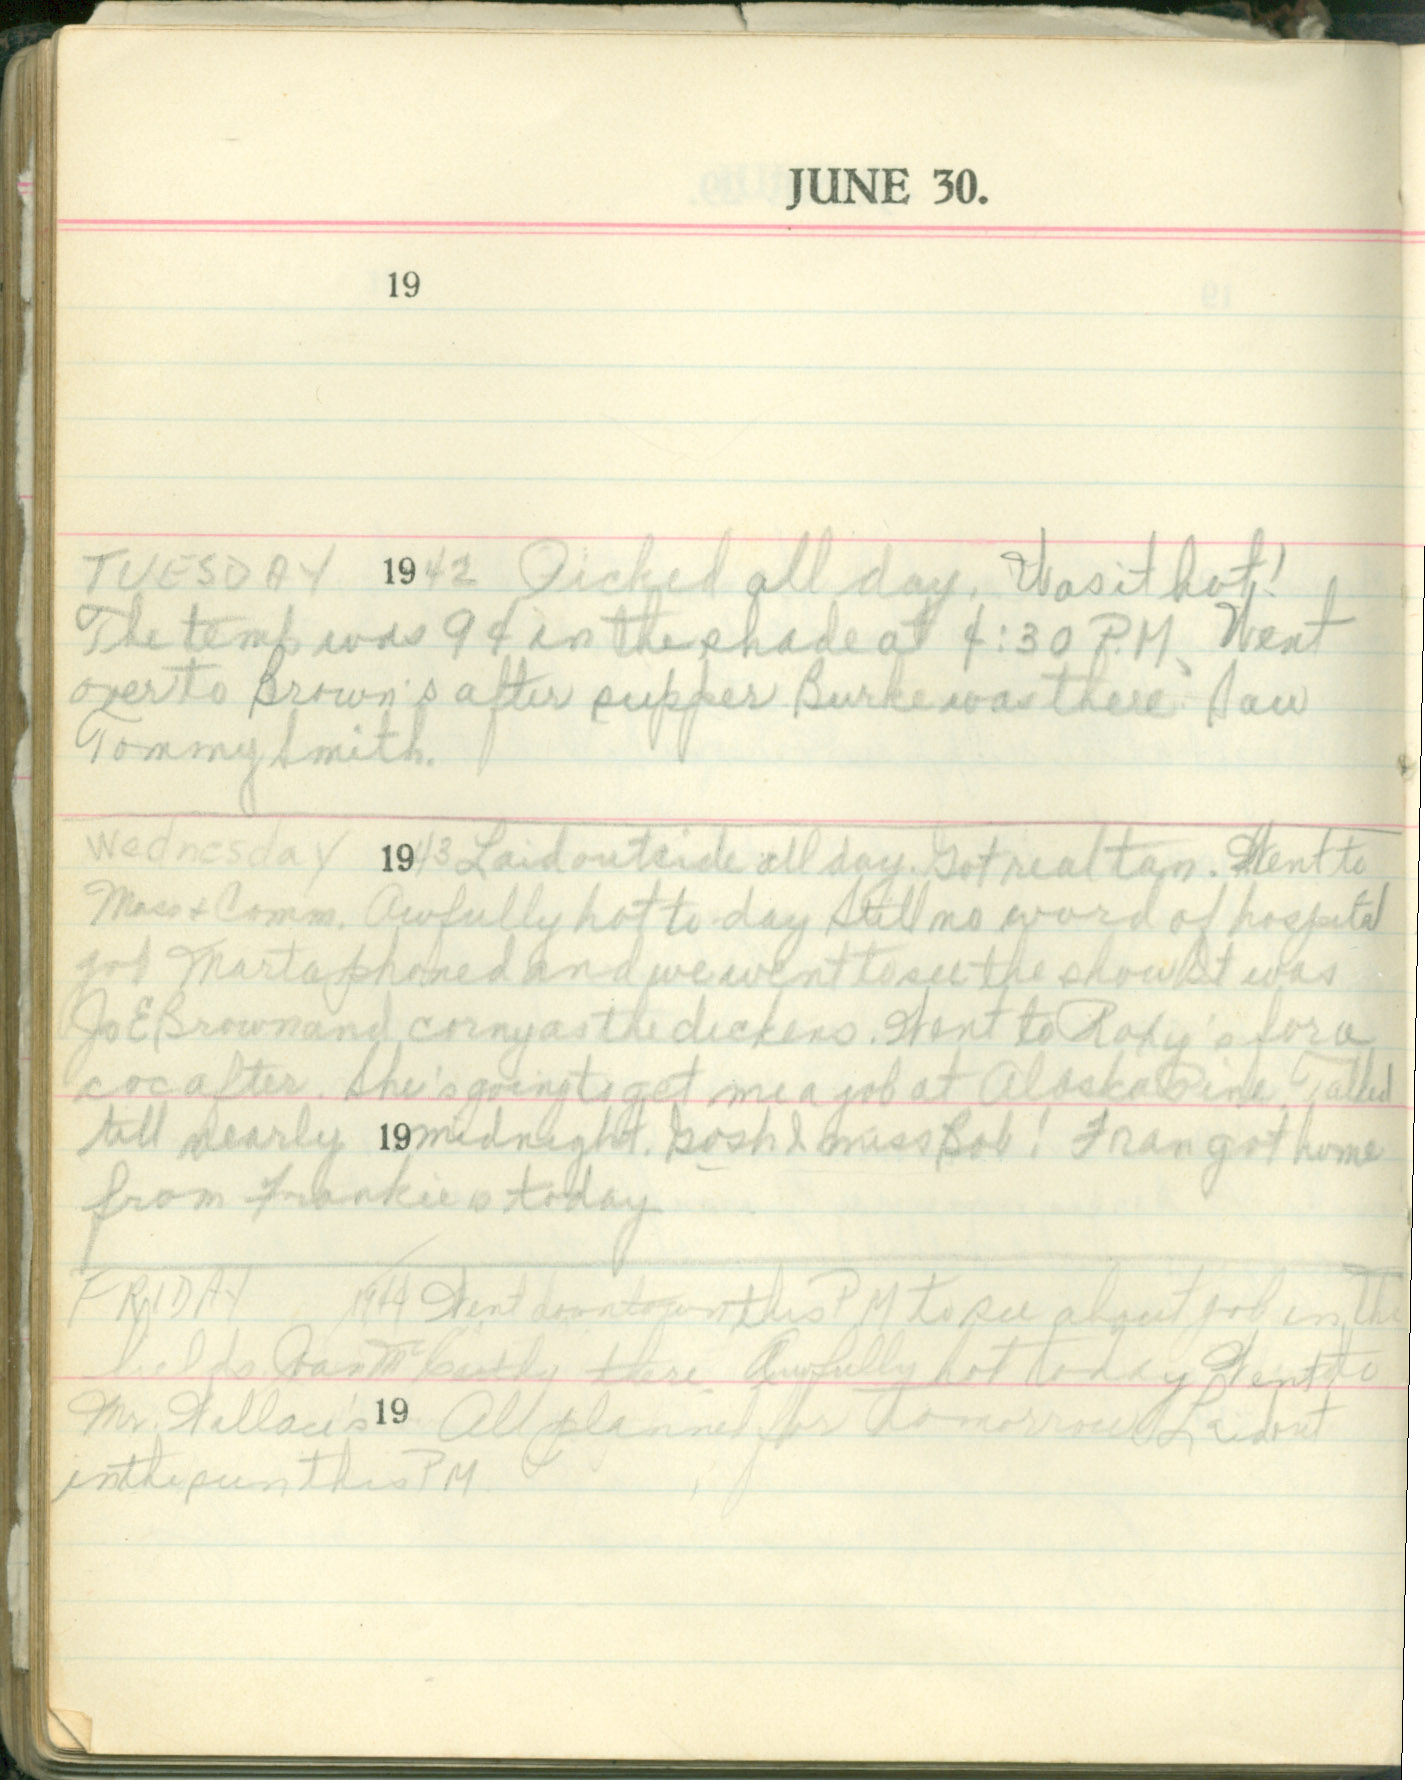 JUNE 30.
19
TUESDAY 1942 Picked all day. Was it hot!
The temp was 94 in the shade at 4:30 P.M. Went
over to Brown's after supper Burke was there. Saw
Tommy Smith.
Wednesday 1943 Laid outside all day. Got real tan. Went to
Mass + Comm. Awfully hot to-day Still no word of hospital
job Marta phoned and we went to see the show It was
Jo E Brown and corny as the dickens. Went to Roxy's for a
coc after. She's going to get me a job at Alaska Pine. Talked
till nearly 19 midnight. Gosh I miss Bob! Fran got home
from Frankie's today
FRIDAY 1944 Went downtown this P M to see about job in the
Joan McCarthy there. Awfully hot today Went to
Mr. Wallace's 19 All planned for tomorrow Laid out
in the sun this P M